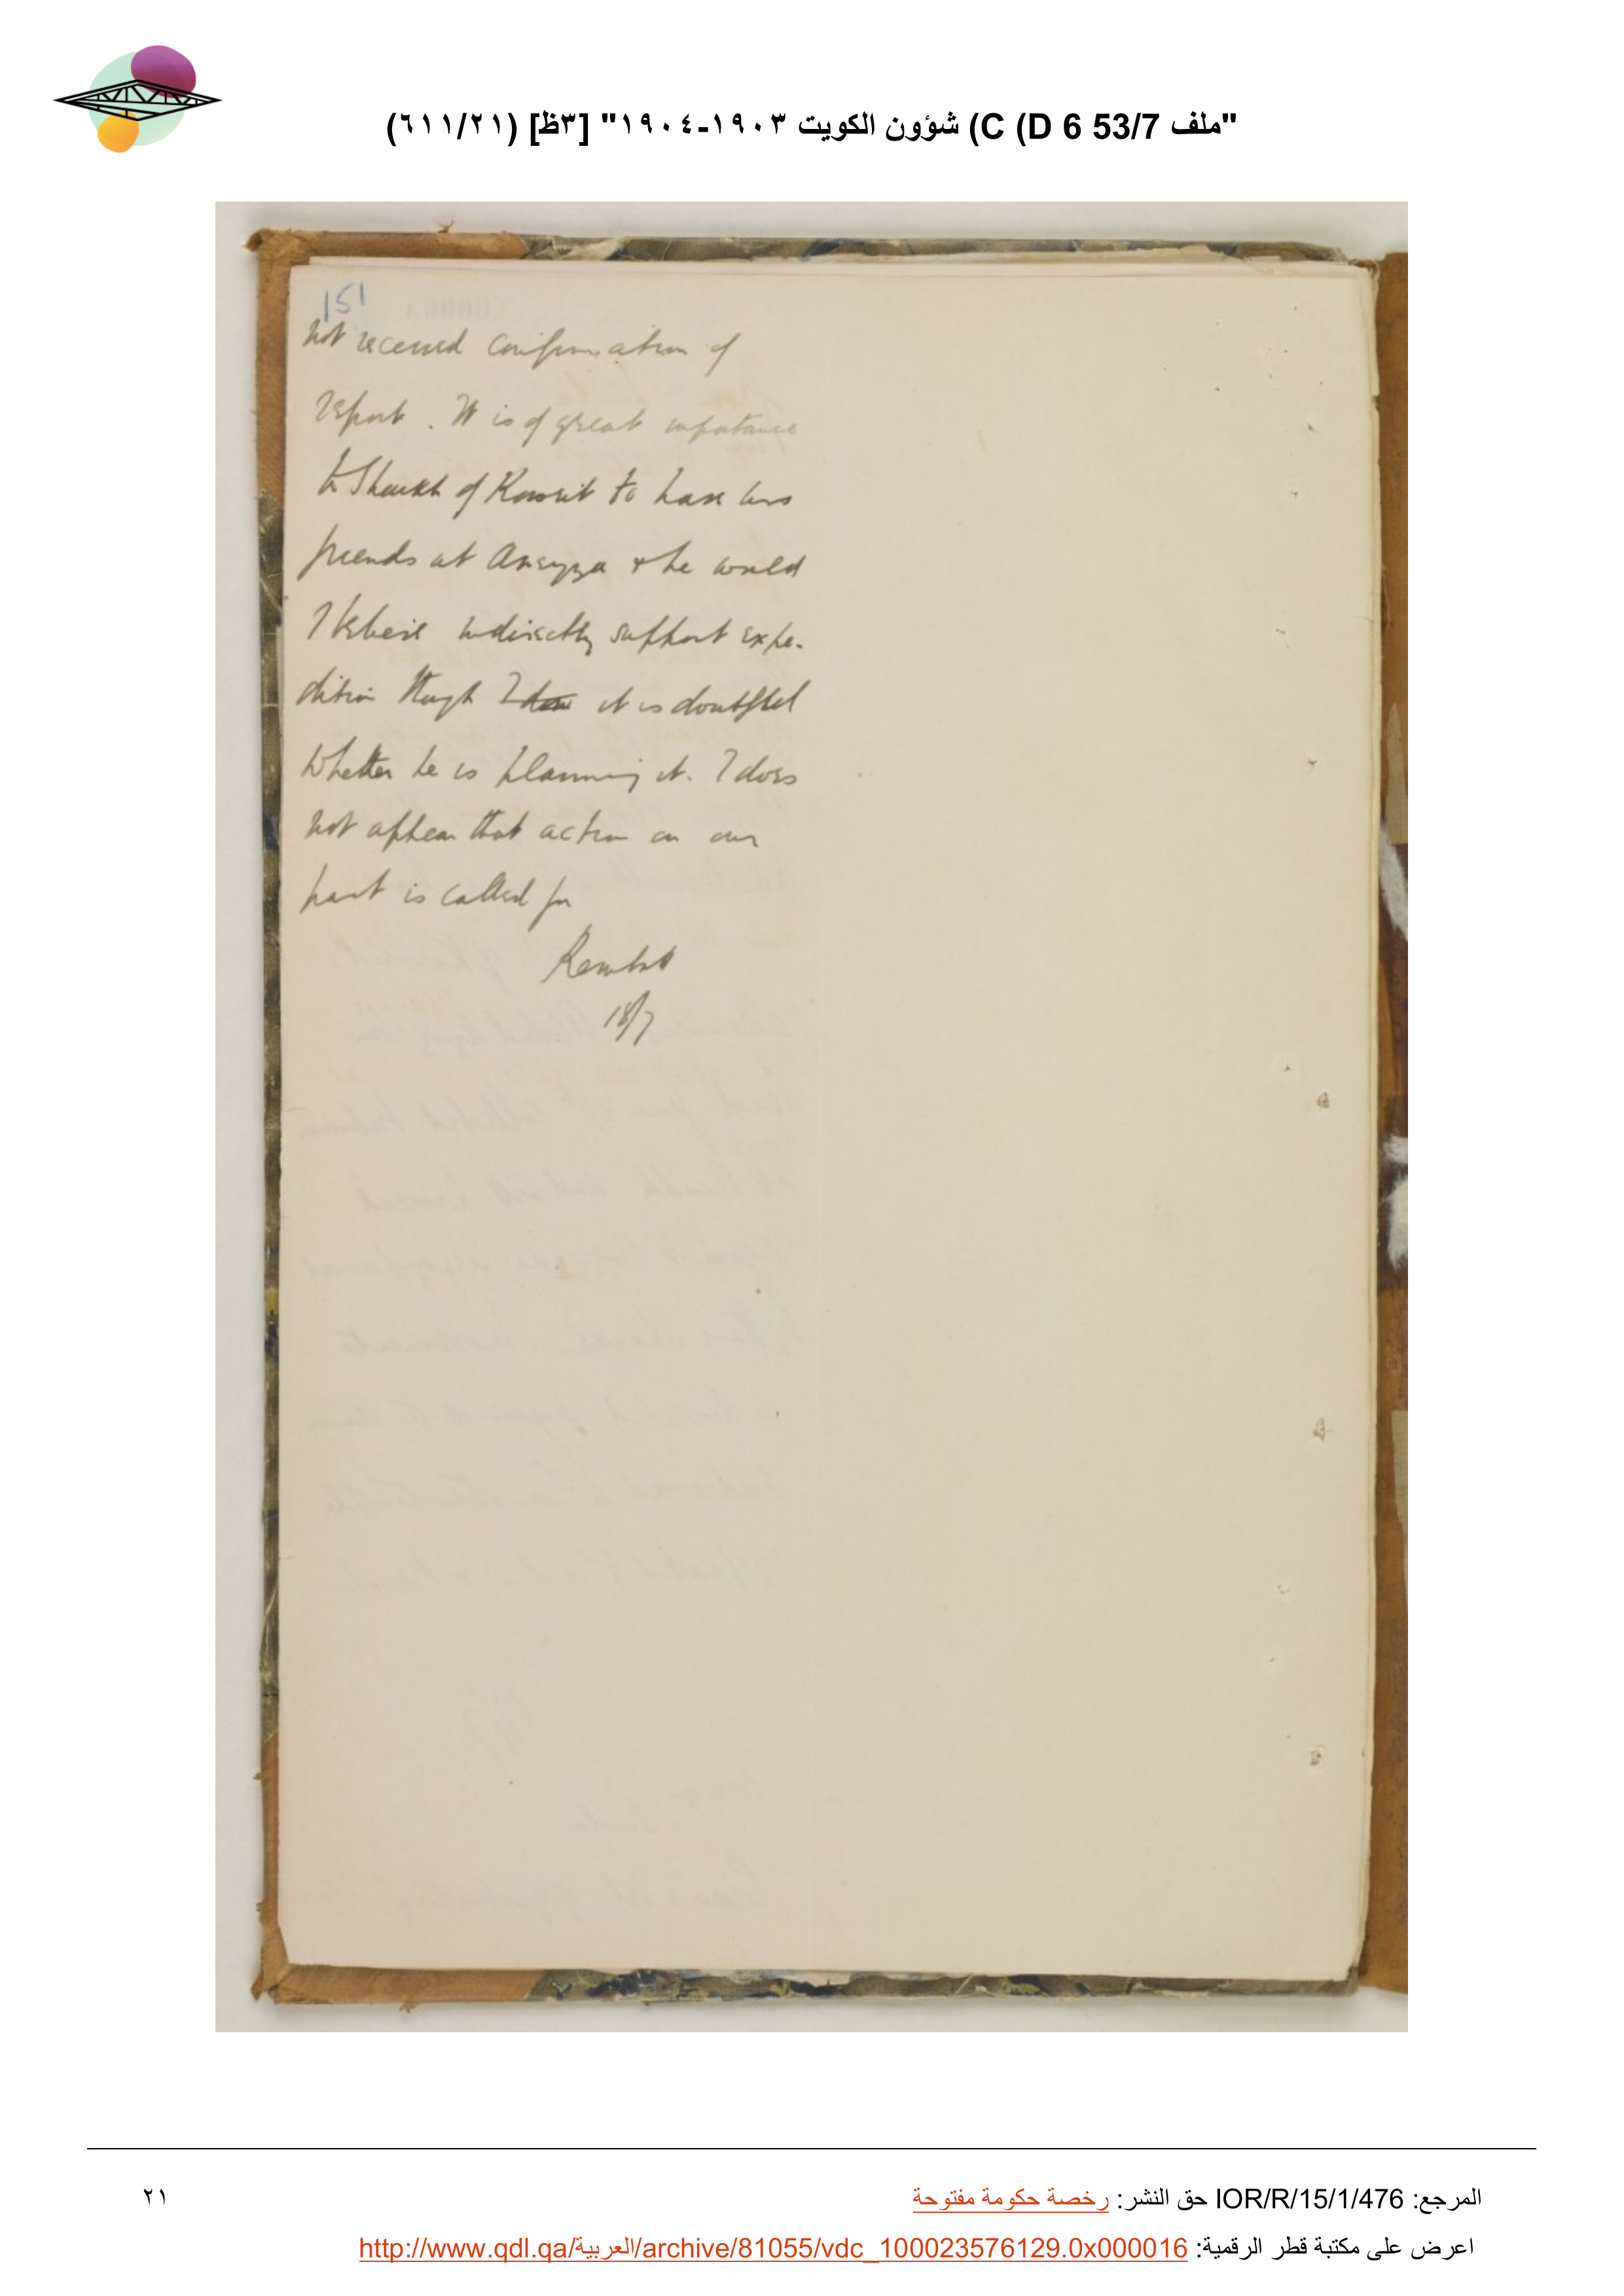 "ملف 53/7 C (D 6) شؤون الكويت ١٩٠٣-١٩٠٤" [٣ظ] (٦١١/٢١)
151
not received confirmation of
report. It is of great importance
to Shaikh of Koweit to have his
friends at Aneyza & he would
I believe indirectly support expe-
dition though I it is doubtful
whether he is planning it. I does
not appear that action on our
part is called for
Kemball
18/7
المرجع: IOR/R/15/1/476 حق النشر: رخصة حكومة مفتوحة
٢١
اعرض على مكتبة قطر الرقمية: http://www.qdl.qa/العربية/archive/81055/vdc_100023576129.0x000016